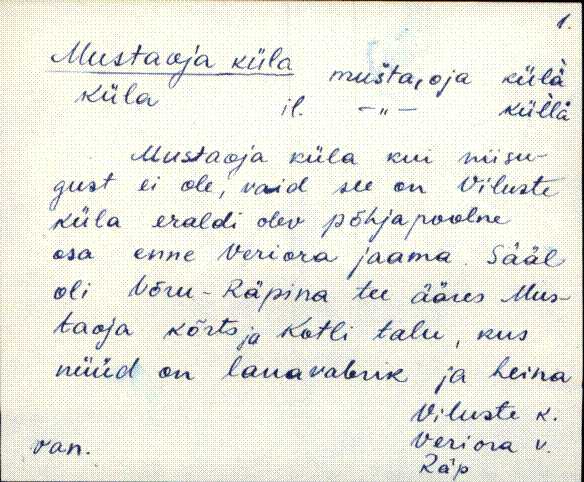 1.
Mustaoja küla mušta,oja külà
küla il. -„- küllä
Mustaoja küla kui niisu-
gust ei ole, vaid see on Viluste
küla eraldi olev põhjapoolne
osa enne Veriora jaama. Sääl
oli Võru-Räpina tee ääres Mus-
taoja kõrts ja Kotli talu, kus
nüüd on lauavabrik ja heina
Viluste k.
van. Veriora v.
Räp